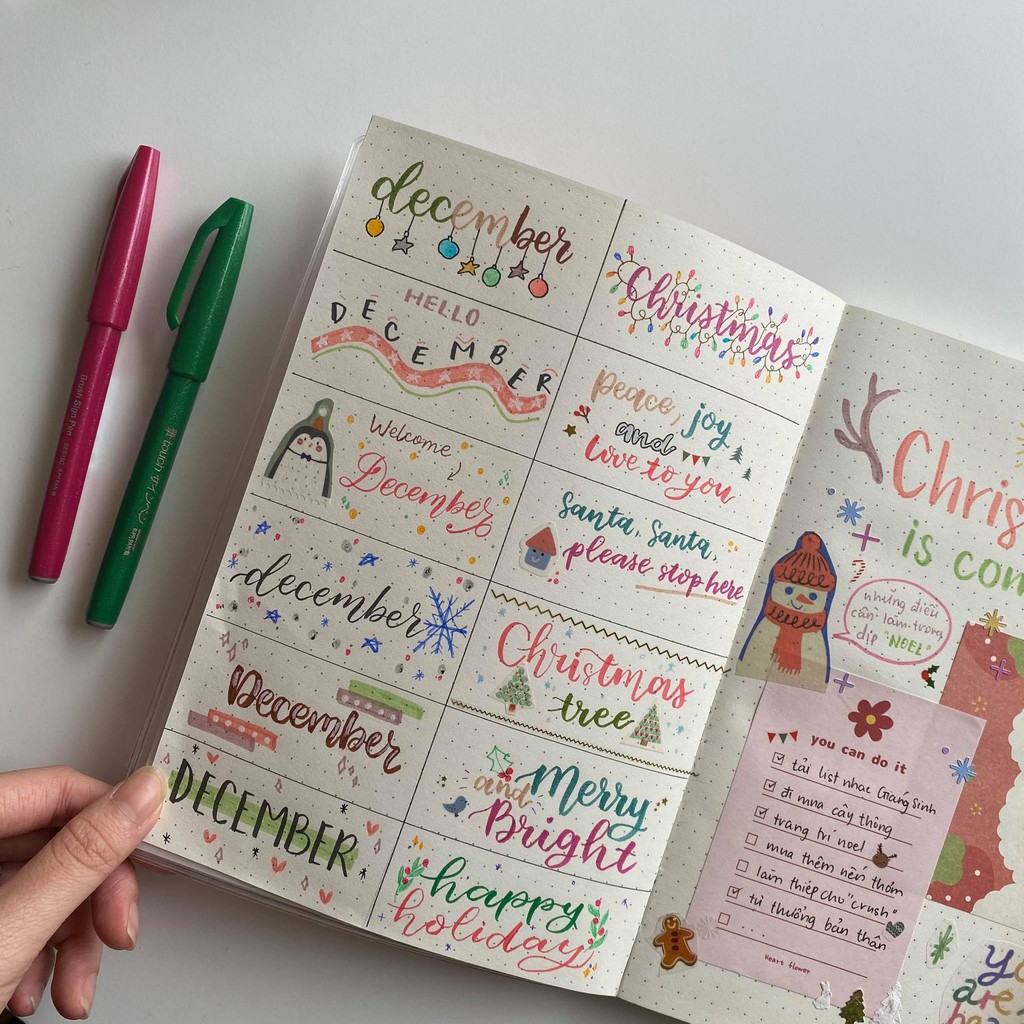 Brush Sign Pen
touch サインペン
december
HELLO
DECEMBER
Welcome
December
december
December
DECEMBER
Christmas
peace, joy
and
love to you
Santa, Santa,
please stop here
Christmas
tree
Merry
and
Bright
happy
holiday
Chris
is com
những điều
cần làm trong
dịp "NOEL"
you can do it
tải list nhạc Giáng Sinh
đi mua cây thông
trang trí noel
mua thêm nến thơm
làm thiệp cho "crush"
tự thưởng bản thân
Heart flower
are